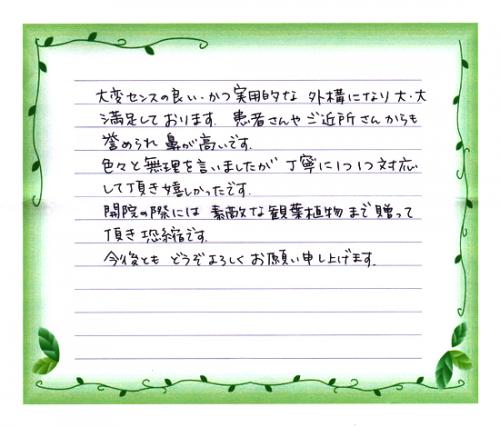 大変センスの良い・かつ実用的な 外構になり大・大
満足しております。患者さんやご近所さんからも
誉められ 鼻が高いです。
色々と無理を言いましたが 丁寧に1つ1つ対応
して頂き嬉しかったです。
開院の際には 素敵な観葉植物まで贈って
頂き恐縮です。
今後とも どうぞよろしく お願い申し上げます。